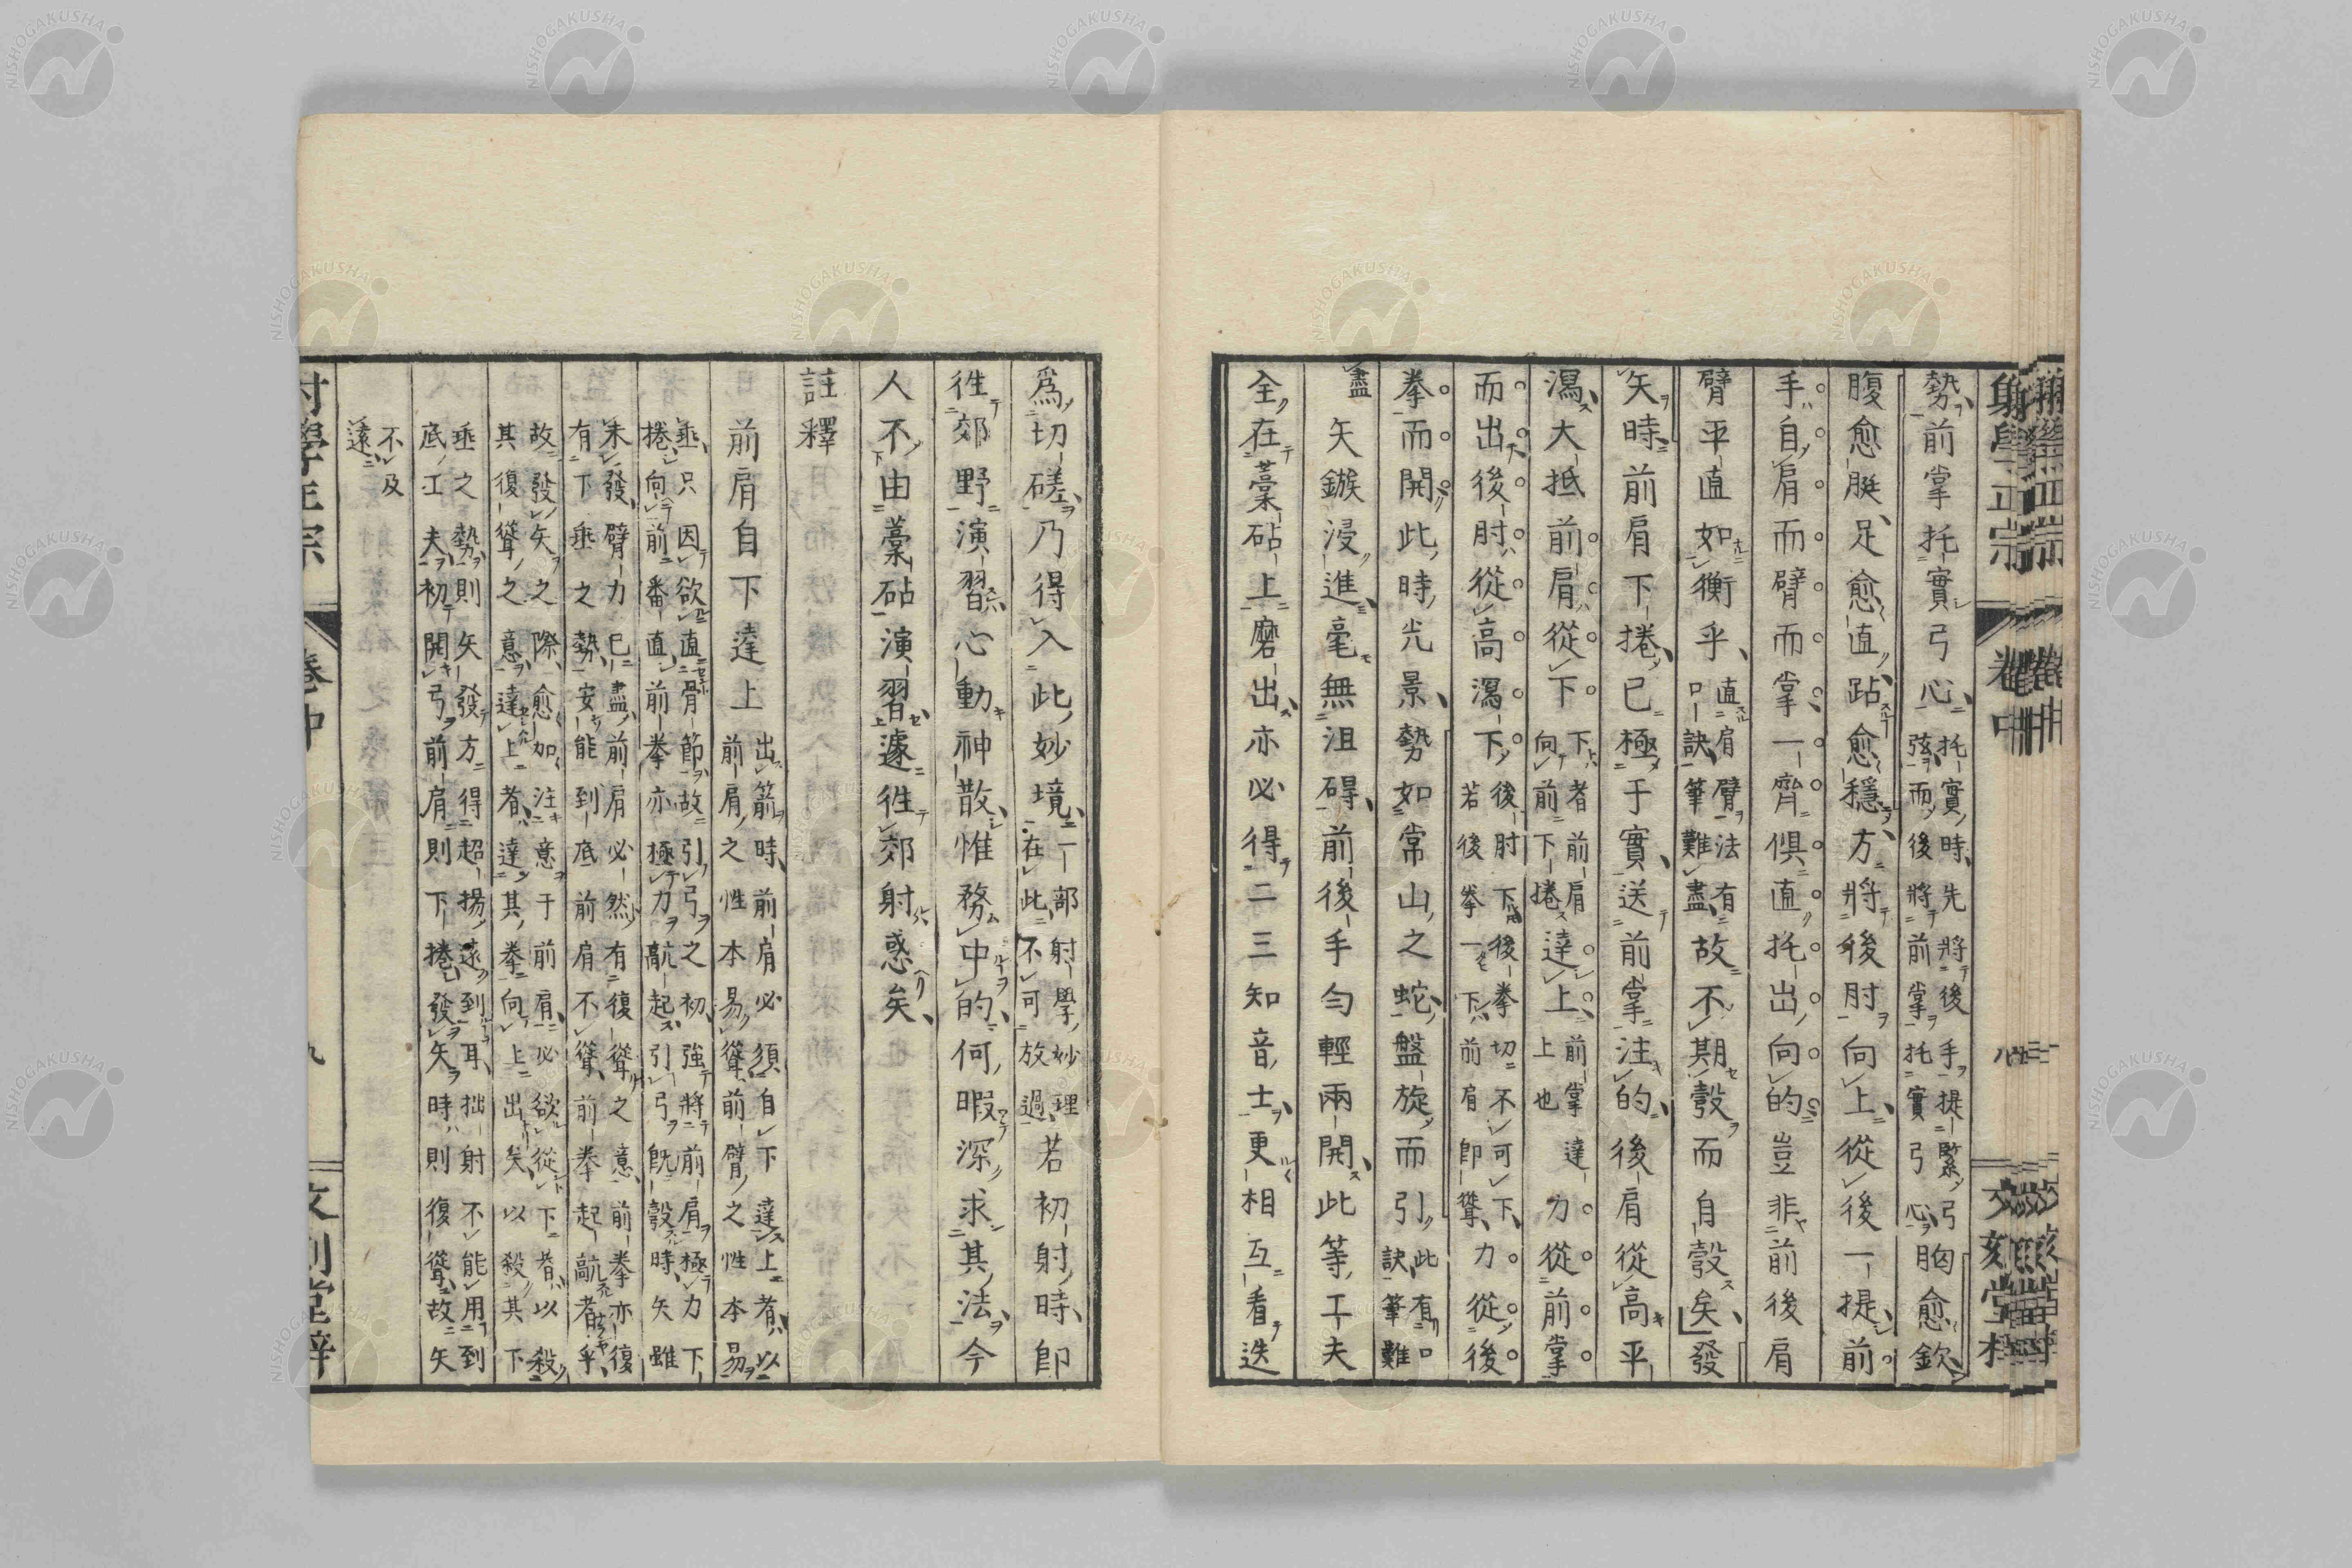 勢前掌托實弓心托實時先將後手提緊弓弦而後將前掌托實弓心胸愈欽
腹愈脡足愈直跕愈穩方將後肘向上從後一提前
手自肩而臂而掌一齊俱直托出向的豈非前後肩
臂平直如衡乎直肩臂法有口訣筆難盡故不期彀而自彀矣發
矢時前肩下捲已極于實送前掌注的後肩從高平
瀉大抵前肩從下下者前肩向前下捲達上前掌上也達力從前掌
而出後肘從高瀉下後肘下後拳若後拳一下切不可下前肩卽聳力從後
拳而開此時光景勢如常山之蛇盤旋而引此有口訣筆難
盡矢鏃浸進毫無沮碍前後手勻輕兩開此等工夫
全在藁砧上磨出亦必得二三知音士更相互看迭
爲切磋乃得入此妙境一部射學妙理在此不可放過若初射時卽
徃郊野演習心動神散惟務中的何暇深求其法今
人不由藁砧演習遽徃郊射惑矣
註釋
前肩自下達上出箭時前肩必須自下達上者以前肩之性本易聳前臂之性本易
垂只因欲直骨節故引弓之初強將前肩極力下捲向前番直前拳亦極力高起引弓旣彀時矢雖
未發臂力已盡前肩必然有復聳之意前拳亦復有下垂之勢安能到底前肩不聳前拳起高者乎
故發矢之際愈加注意于前肩必欲從下者以殺其復聳之意達上者達其拳向上出矣以殺其下
垂之勢則矢發方得超揚遠到耳拙射不能用到底工夫初開弓前肩則下捲發矢時則復聳故矢
不及遠
射學正宗
卷中
九